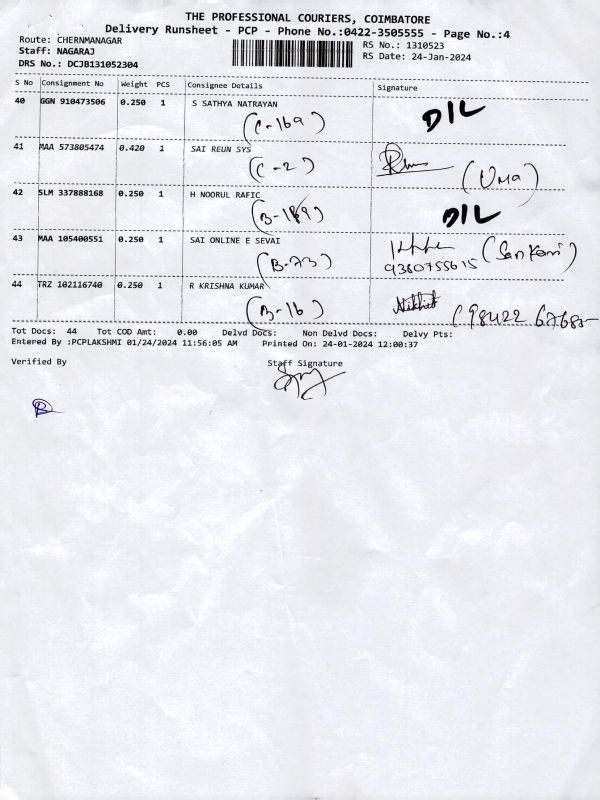 THE PROFESSIONAL COURIERS, COIMBATORE
Delivery Runsheet - PCP - Phone No.:0422-3505555 - Page No.:4
Route: CHERNMANAGAR
RS No.: 1310523
Staff: NAGARAJ
RS Date: 24-Jan-2024
DRS No.: DCJB131052304
S No Consignment No Weight PCS Consignee Details Signature
40 GGN 910473506 0.250 1 S SATHYA NATRAYAN
(C-169) D/L
41 MAA 573805474 0.420 1 SAI REUN SYS
(C-2) (Uma)
42 SLM 337888168 0.250 1 H NOORUL RAFIC
(B-189) D/L
43 MAA 105400551 0.250 1 SAI ONLINE E SEVAI
(B-73) 9360755615 (Sankari)
44 TRZ 102116740 0.250 1 R KRISHNA KUMAR
(B-16) Nikhil (98422 67685
Tot Docs: 44 Tot COD Amt: 0.00 Delvd Docs: Non Delvd Docs: Delvy Pts:
Entered By :PCPLAKSHMI 01/24/2024 11:56:05 AM Printed On: 24-01-2024 12:00:37
Verified By Staff Signature